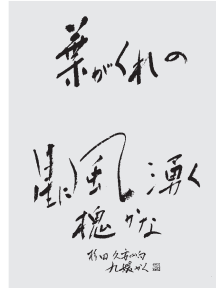 葉がくれの
星に風湧く
槐かな
杉田久女の句
九媛かく